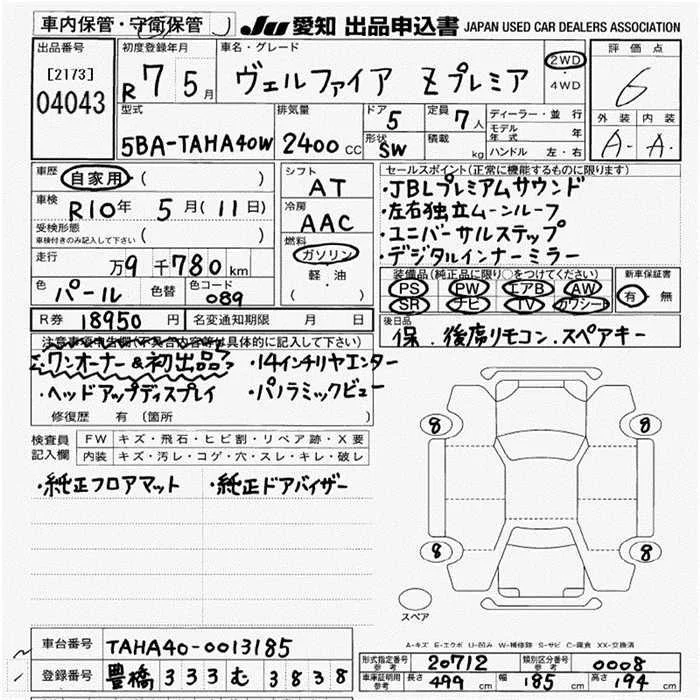 車内保管・守衛保管 JU 愛知 出品申込書 JAPAN USED CAR DEALERS ASSOCIATION
出品番号 初度登録年月 車名・グレード 評価点
[2173] R 7 5月 ヴェルファイア Zプレミア 2WD・4WD 6
04043
型式 排気量 ドア 5 定員 7人 ディーラー・並行 外装 内装
5BA-TAHA40W 2400cc 形状 SW 積載 kg モデル年式 年 A- A-
ハンドル 左・右
車歴 自家用 ( ) シフト AT セールスポイント(正常に機能するものに限ります)
車検 R10年 5月(11日) 冷房 AAC ・JBLプレミアムサウンド
受検形態 車検付きのみ記入して下さい ( ) ・左右独立ムーンルーフ
走行 万9千780km 燃料 ガソリン ・ユニバーサルステップ
軽・油 ・デジタルインナーミラー
色 パール 色替 色コード 089 ( ) 装備品(純正品に限り○をつけてください) 新車保証書
PS PW エアB AW 有・無
SR ナビ TV カワシート
R券 18950円 名変通知期限 月 日 後日品
保.後席リモコン.スペアキー
注意事項申告欄(不具合内容等は具体的に記入して下さい)
ワンオーナー&初出品 ・14インチリヤエンター
・ヘッドアップディスプレイ ・パノラミックビュー
修復歴 有 (箇所 )
検査員記入欄 FW キズ・飛石・ヒビ割・リペア跡・X要
内装 キズ・汚レ・コゲ・穴・スレ・キレ・破レ
・純正フロアマット ・純正ドアバイザー
8 8
8 8
スペア
A-キズ E-エクボ U-凹み W-補修跡 S-サビ C-腐食 XX-交換済
車台番号 TAHA40-0013185
登録番号 豊橋 333 む 3838
形式指定番号 参考 20712 類別区分番号 参考 0008
車庫証明用 参考 長さ 499cm 幅 185cm 高さ 194cm